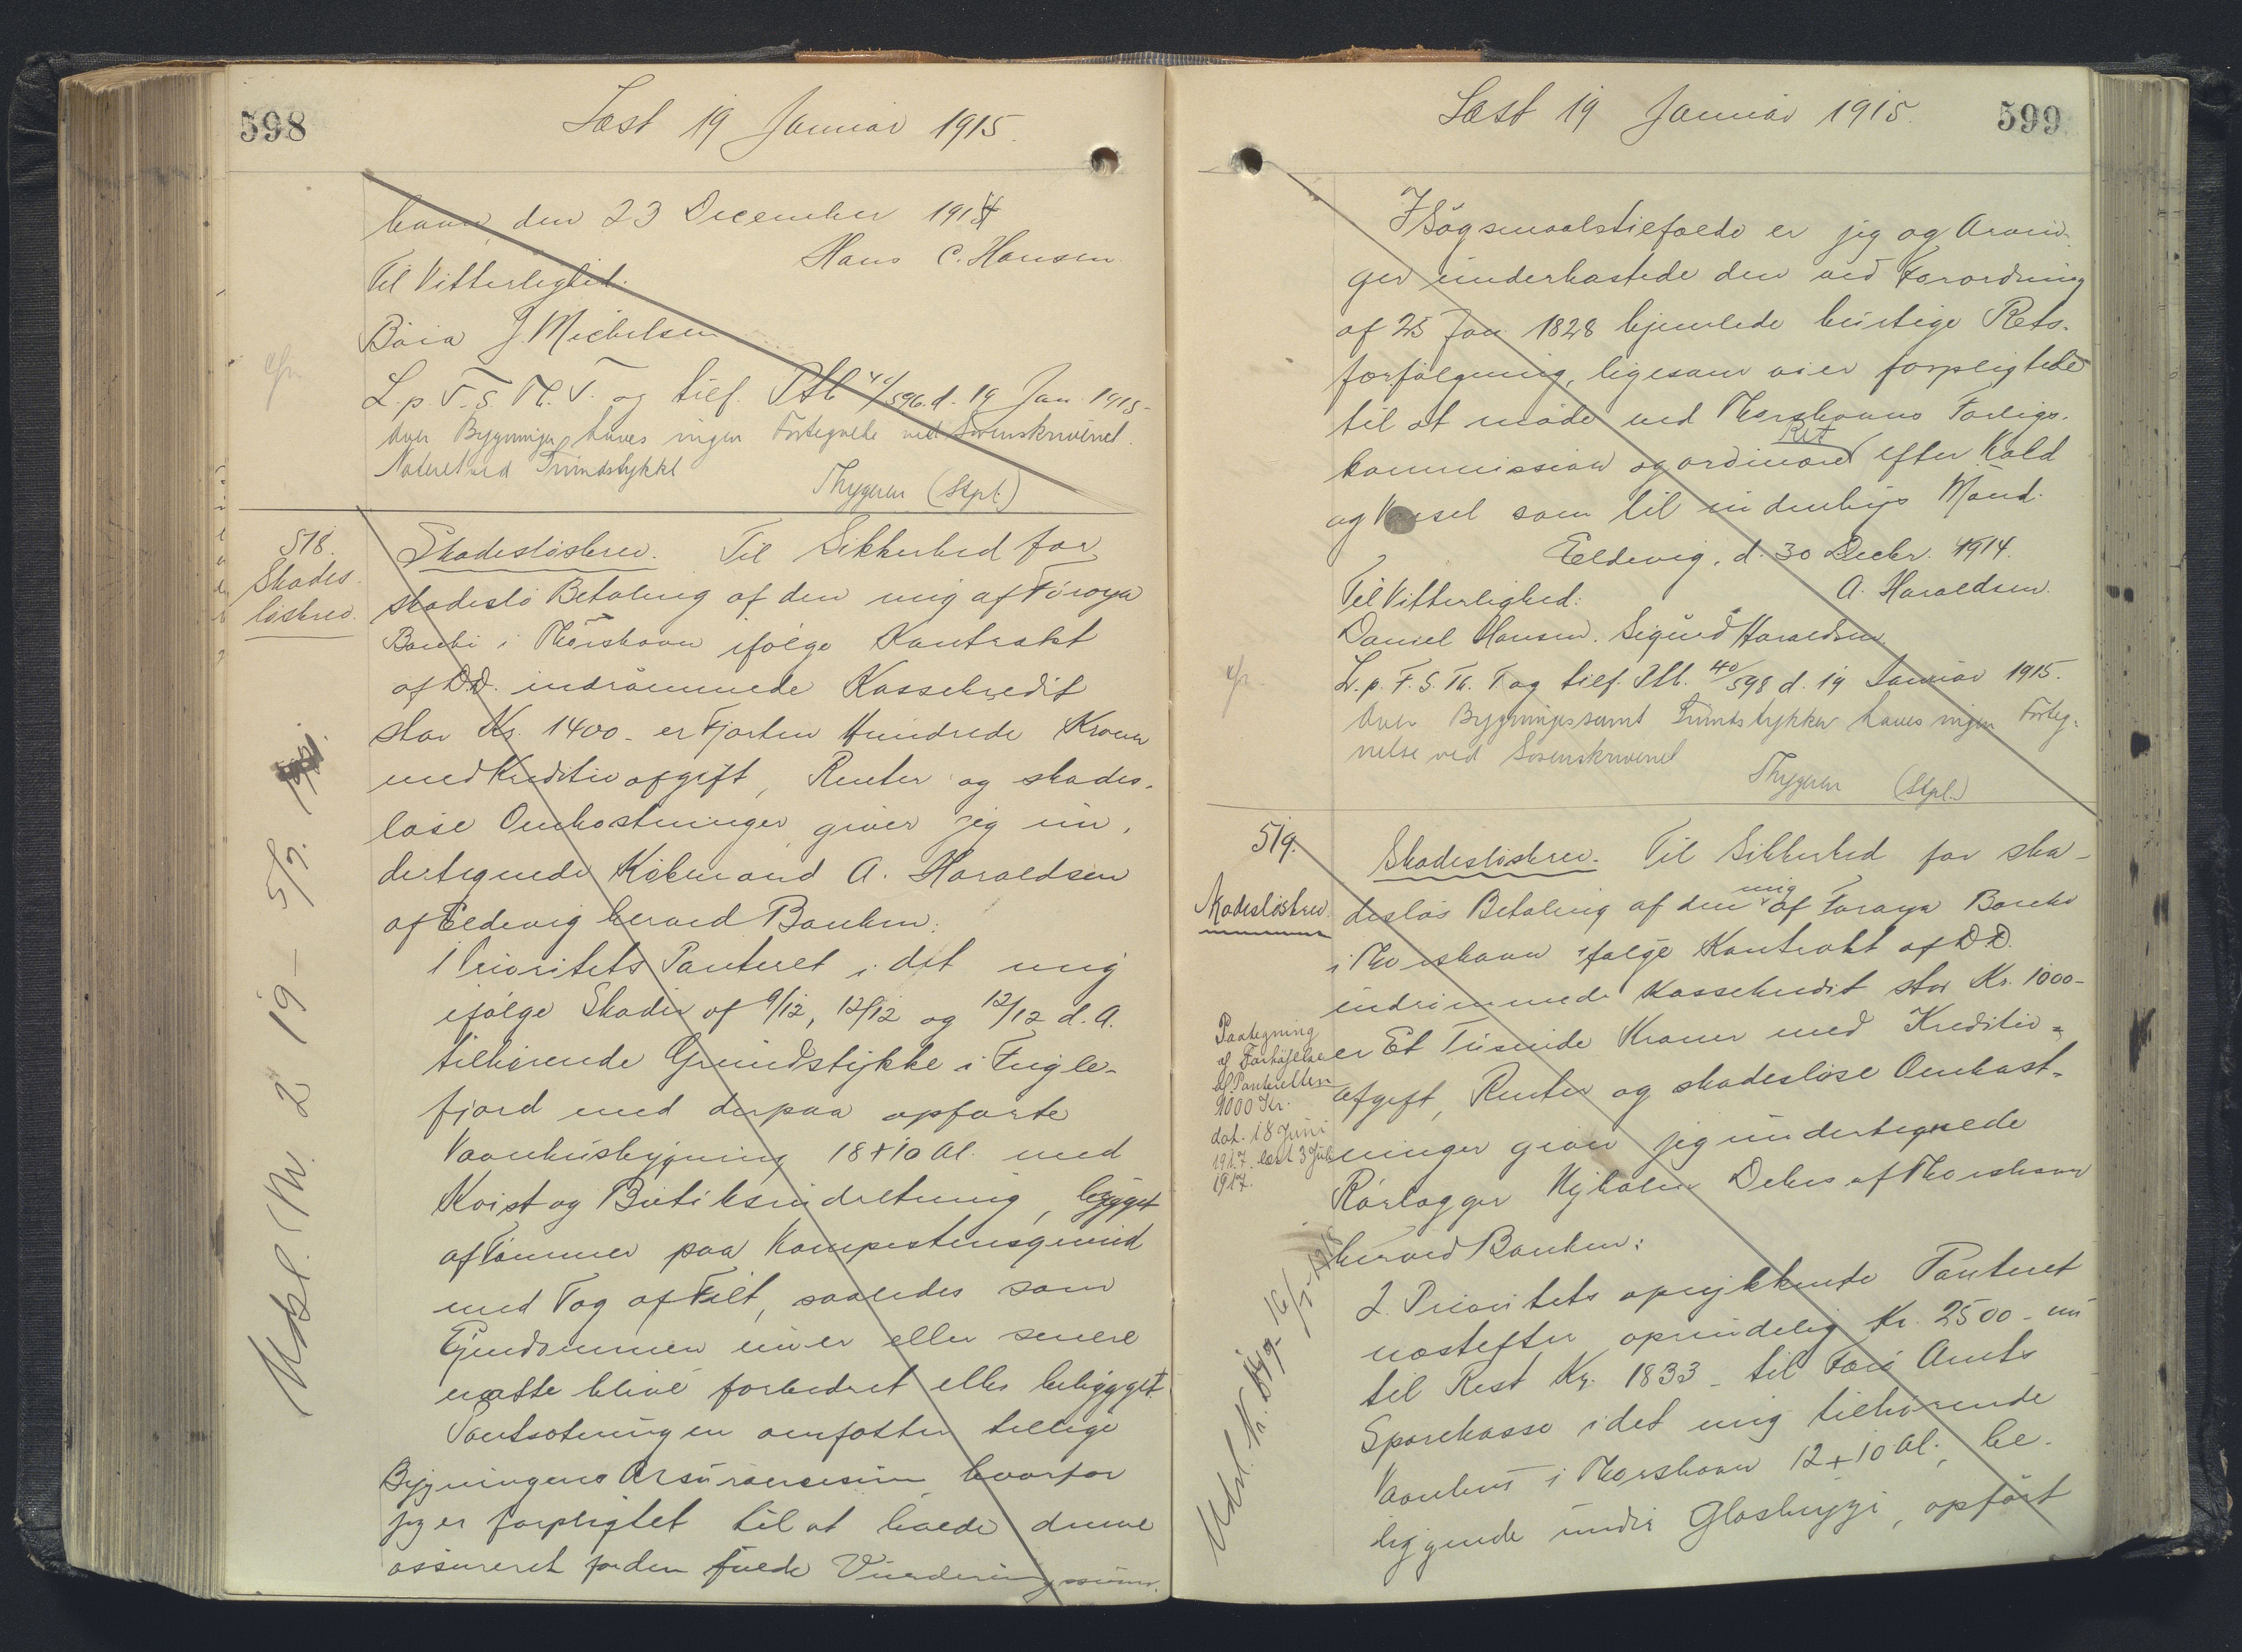 598
Læst 19 Januar 1915.
havn, den 23 December 1914
Hans C. Hansen.
Til Vitterlighed.
J. Michelsen
L. p. F. S. Th. T. og tilf. Ptb 40/596 d. 19 Jan. 1915.
Over Bygninger haves ingen Fortegnelse ved Sorenskriveriet.
Noteret ved Grundstykket
Thygesen (Stpl.)
cfr.
518.
Skades
løsbrev.
Skadesløsbrev. Til Sikkerhed for
skadeslø Betaling af den mig af Føroya
Banki i Thorshavn ifølge Kontrakt
af D.D. indrømmede Kassekredit
stor Kr. 1400 - er Fjorten Hundrede Kroner
med Kreditivafgift, Renter og skades-
løse Omkostninger, giver jeg un-
dertegnede Købmand A. Haraldsen
af Eldevig herved Banken:
1 Prioritets Panteret i det mig
ifølge Skøder af 9/12, 12/12 og 12/12 d.A.
tilhørende Grundstykke i Fugle-
fjord med derpaa opførte
Vaanhusbygning 18+10 Al. med
Kvist og Butiksindretning, bygget
af Tømmer paa Kampestensgrund
med Tag af Filt, saaledes som
Ejendommen nu er eller senere
maatte blive forbedret eller bebygget.
Pantsætningen omfatter tillige
Bygningens Assurancesum, hvorfor
jeg er forpligtet til at holde denne
assureret for den fulde Vurderingssum.
Udsl. Nr. 2 19 - 5/7.
599
Læst 19 Januar 1915.
I Søgsmaalstilfælde er jeg og Arvin-
ger underkastede den ved Forordning
af 25 Jan 1828 hjemlede hurtige Rets-
forfølgning, ligesom vi er forpligtede
til at møde ved Thorshavns Forligs-
kommission og ordinære Ret efter Kald
og Varsel som til indenbys Mænd.
Eldevig, d. 30 Decbr. 1914.
A. Haraldsen.
Til Vitterlighed:
Daniel Hansen. Sigurd Haraldsen.
L. p. F. S. Th. T og tilf. Ptb. 40/598 d. 19 Januar 1915.
Over Bygninger samt Grundstykker haves ingen Forteg-
nelse ved Sorenskriveriet
Thygesen (Stpl.)
cfr.
519.
Skadesløsbrev.
Skadesløsbrev. Til Sikkerhed for ska-
desløs Betaling af den mig af Føroya Banki
i Thorshavn ifølge Kontrakt af D.D.
indrømmede Kassekredit stor Kr. 1000-
er Et Tusinde Kroner med Kreditiv-
afgift, Renter og skadesløse Omkost-
ninger giver jeg undertegnede
Rørlægger Debes af Thorshavn
herved Banken:
2. Prioritets oprykkende Panteret
næstefter oprindelig Kr. 2500 - nu
til Rest Kr. 1833 - til Færø Amts
Sparekasse i det mig tilhørende
Vaanhus i Thorshavn 12+10 Al., be-
liggende under Glasbryggi, opført
Paategning
af Forhøjelse
af Panteretten
1000 Kr.
dat. 18 Juni
1917. læst 3 Juli
1917.
Udsl. Nr.